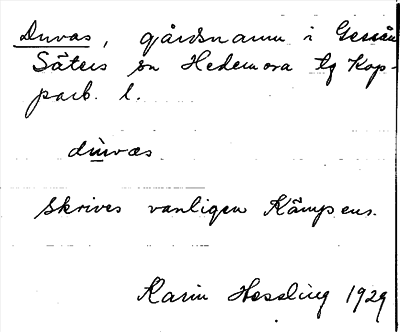 Duvas, gårdsnamn i
Säters sn Hedemora tg Kop-
parb. l.
duvas
Skrives vanligen Kämpens.
Karin Hessling 1929